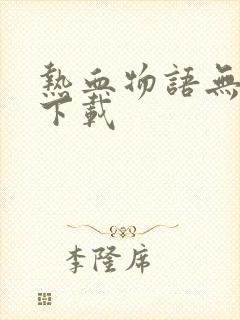 熱血物語無
下載
李隆席